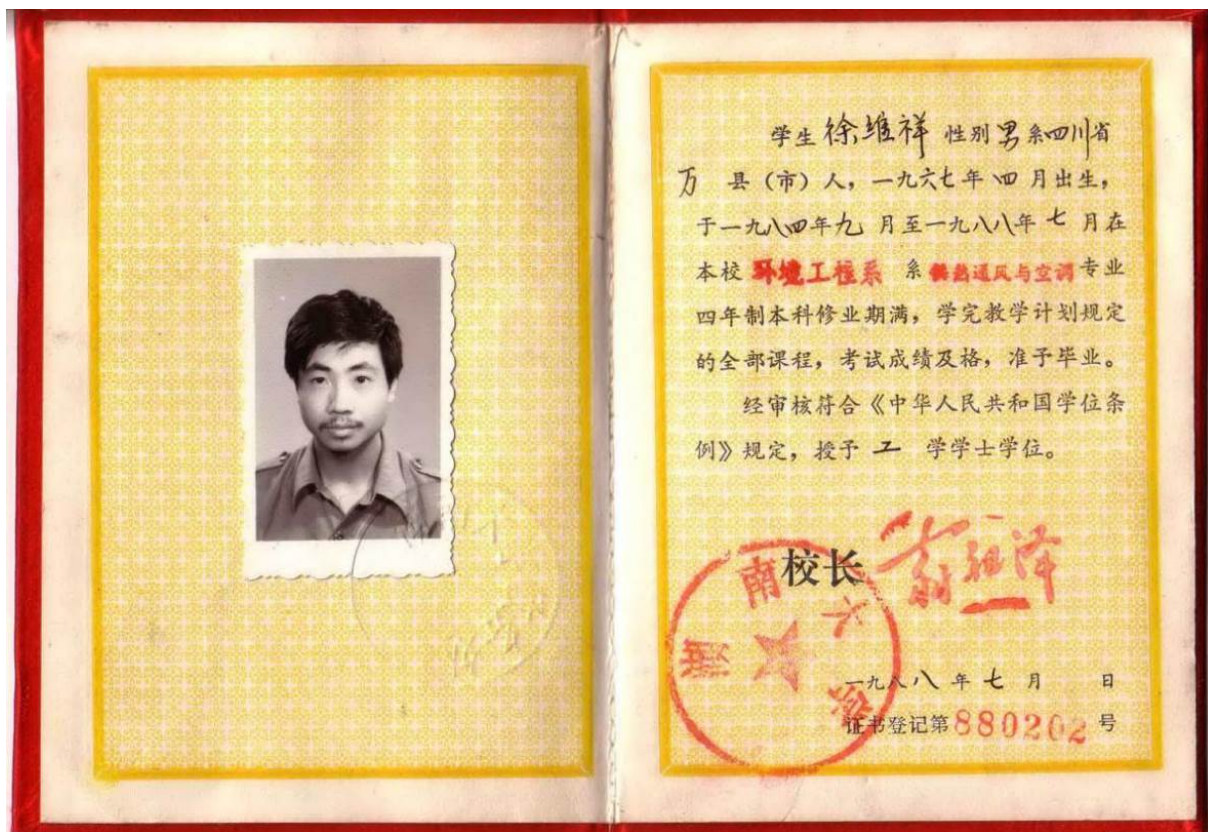 学生 徐维祥 性别 男 系四川省
万 县（市）人，一九六七年 四 月出生，
于一九八四年九 月至一九八八年 七 月在
本校 环境工程系 系 供热通风与空调 专业
四年制本科修业期满，学完教学计划规定
的全部课程，考试成绩及格，准予毕业。
经审核符合《中华人民共和国学位条
例》规定，授予 工 学学士学位。
校长 翁祖泽
湖南大学
一九八八 年 七 月 日
证书登记第880202号